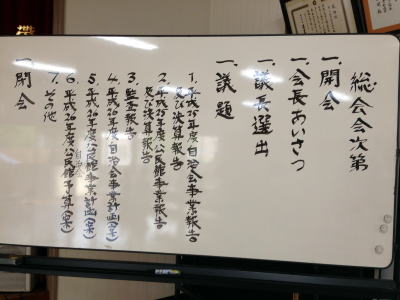 総会会次第
一、開会
一、会長あいさつ
一、議長選出
一、議題
1、平成25年度自治会事業報告
及び決算報告
2、平成25年度公民館事業報告
及び決算報告
3、監査報告
4、平成26年度自治会事業計画(案)
5、平成26年度公民館事業計画(案)
自治会
6、平成26年度公民館予算(案)
7、その他
一、閉会